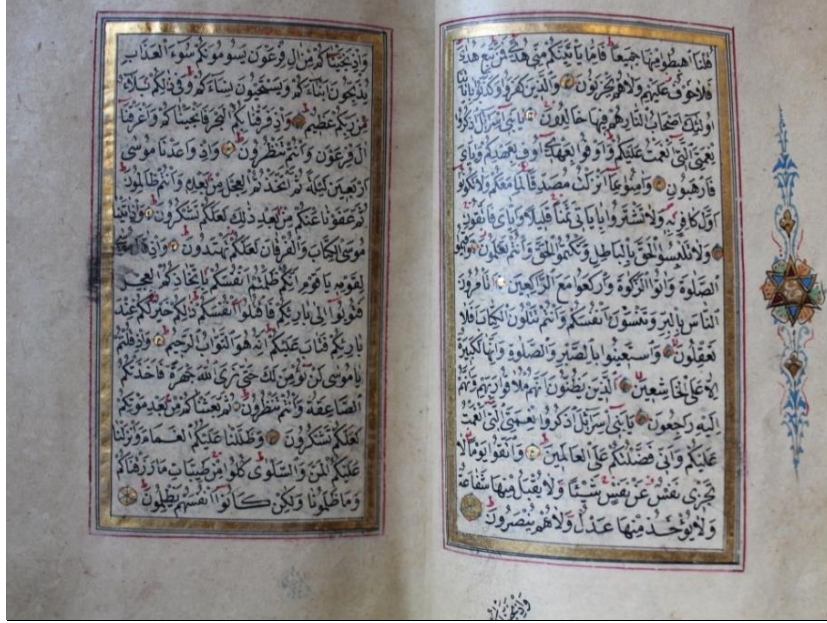 قُلْنَا اهْبِطُوا مِنْهَا جَمِيعًا فَاِمَّا يَاْتِيَنَّكُمْ مِنِّي هُدًى فَمَنْ تَبِعَ هُدَايَ
فَلَا خَوْفٌ عَلَيْهِمْ وَلَا هُمْ يَحْزَنُونَ وَالَّذِينَ كَفَرُوا وَكَذَّبُوا بِاٰيَاتِنَا
اُولٰئِكَ اَصْحَابُ النَّارِ هُمْ فِيهَا خَالِدُونَ يَا بَنِي اِسْرَائِلَ اذْكُرُوا
نِعْمَتِيَ الَّتِي اَنْعَمْتُ عَلَيْكُمْ وَاَوْفُوا بِعَهْدِي اُوفِ بِعَهْدِكُمْ وَاِيَّايَ
فَارْهَبُونِ وَاٰمِنُوا بِمَا اَنْزَلْتُ مُصَدِّقًا لِمَا مَعَكُمْ وَلَا تَكُونُوا
اَوَّلَ كَافِرٍ بِهِ وَلَا تَشْتَرُوا بِاٰيَاتِي ثَمَنًا قَلِيلًا وَاِيَّايَ فَاتَّقُونِ
وَلَا تَلْبِسُوا الْحَقَّ بِالْبَاطِلِ وَتَكْتُمُوا الْحَقَّ وَاَنْتُمْ تَعْلَمُونَ وَاَقِيمُوا
الصَّلٰوةَ وَاٰتُوا الزَّكٰوةَ وَارْكَعُوا مَعَ الرَّاكِعِينَ اَتَاْمُرُونَ
النَّاسَ بِالْبِرِّ وَتَنْسَوْنَ اَنْفُسَكُمْ وَاَنْتُمْ تَتْلُونَ الْكِتَابَ اَفَلَا
تَعْقِلُونَ وَاسْتَعِينُوا بِالصَّبْرِ وَالصَّلٰوةِ وَاِنَّهَا لَكَبِيرَةٌ
اِلَّا عَلَى الْخَاشِعِينَ اَلَّذِينَ يَظُنُّونَ اَنَّهُمْ مُلَاقُوا رَبِّهِمْ وَاَنَّهُمْ
اِلَيْهِ رَاجِعُونَ يَا بَنِي اِسْرَائِلَ اذْكُرُوا نِعْمَتِيَ الَّتِي اَنْعَمْتُ
عَلَيْكُمْ وَاَنِّي فَضَّلْتُكُمْ عَلَى الْعَالَمِينَ وَاتَّقُوا يَوْمًا لَا
تَجْزِي نَفْسٌ عَنْ نَفْسٍ شَيْئًا وَلَا يُقْبَلُ مِنْهَا شَفَاعَةٌ
وَلَا يُؤْخَذُ مِنْهَا عَدْلٌ وَلَا هُمْ يُنْصَرُونَ
وَاِذْ نَجَّيْنَاكُمْ
وَاِذْ نَجَّيْنَاكُمْ مِنْ اٰلِ فِرْعَوْنَ يَسُومُونَكُمْ سُوءَ الْعَذَابِ
يُذَبِّحُونَ اَبْنَاءَكُمْ وَيَسْتَحْيُونَ نِسَاءَكُمْ وَفِي ذٰلِكُمْ بَلَاءٌ
مِنْ رَبِّكُمْ عَظِيمٌ وَاِذْ فَرَقْنَا بِكُمُ الْبَحْرَ فَاَنْجَيْنَاكُمْ وَاَغْرَقْنَا
اٰلَ فِرْعَوْنَ وَاَنْتُمْ تَنْظُرُونَ وَاِذْ وَاعَدْنَا مُوسٰى
اَرْبَعِينَ لَيْلَةً ثُمَّ اتَّخَذْتُمُ الْعِجْلَ مِنْ بَعْدِهِ وَاَنْتُمْ ظَالِمُونَ
ثُمَّ عَفَوْنَا عَنْكُمْ مِنْ بَعْدِ ذٰلِكَ لَعَلَّكُمْ تَشْكُرُونَ وَاِذْ اٰتَيْنَا
مُوسَى الْكِتَابَ وَالْفُرْقَانَ لَعَلَّكُمْ تَهْتَدُونَ وَاِذْ قَالَ مُوسٰى
لِقَوْمِهِ يَا قَوْمِ اِنَّكُمْ ظَلَمْتُمْ اَنْفُسَكُمْ بِاتِّخَاذِكُمُ الْعِجْلَ
فَتُوبُوا اِلٰى بَارِئِكُمْ فَاقْتُلُوا اَنْفُسَكُمْ ذٰلِكُمْ خَيْرٌ لَكُمْ عِنْدَ
بَارِئِكُمْ فَتَابَ عَلَيْكُمْ اِنَّهُ هُوَ التَّوَّابُ الرَّحِيمُ وَاِذْ قُلْتُمْ
يَا مُوسٰى لَنْ نُؤْمِنَ لَكَ حَتّٰى نَرَى اللّٰهَ جَهْرَةً فَاَخَذَتْكُمُ
الصَّاعِقَةُ وَاَنْتُمْ تَنْظُرُونَ ثُمَّ بَعَثْنَاكُمْ مِنْ بَعْدِ مَوْتِكُمْ
لَعَلَّكُمْ تَشْكُرُونَ وَظَلَّلْنَا عَلَيْكُمُ الْغَمَامَ وَاَنْزَلْنَا
عَلَيْكُمُ الْمَنَّ وَالسَّلْوٰى كُلُوا مِنْ طَيِّبَاتِ مَا رَزَقْنَاكُمْ
وَمَا ظَلَمُونَا وَلٰكِنْ كَانُوا اَنْفُسَهُمْ يَظْلِمُونَ